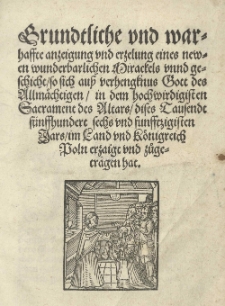 Grundtliche vnd war-
haffte anzeigung vnd erzelung eines new-
en wunderbarlichen Mirackels vnnd ge-
schicht/so sich auß verhengknus Gott des
Allmächtigen/ in dem hochwirdigisten
Sacrament des Altars/ dises Tausendt
fünffhundert sechs vnd funfftzigisten
Jars/im Land vnd Königreich
Poln erzaigt vnd zuge-
tragen hat.